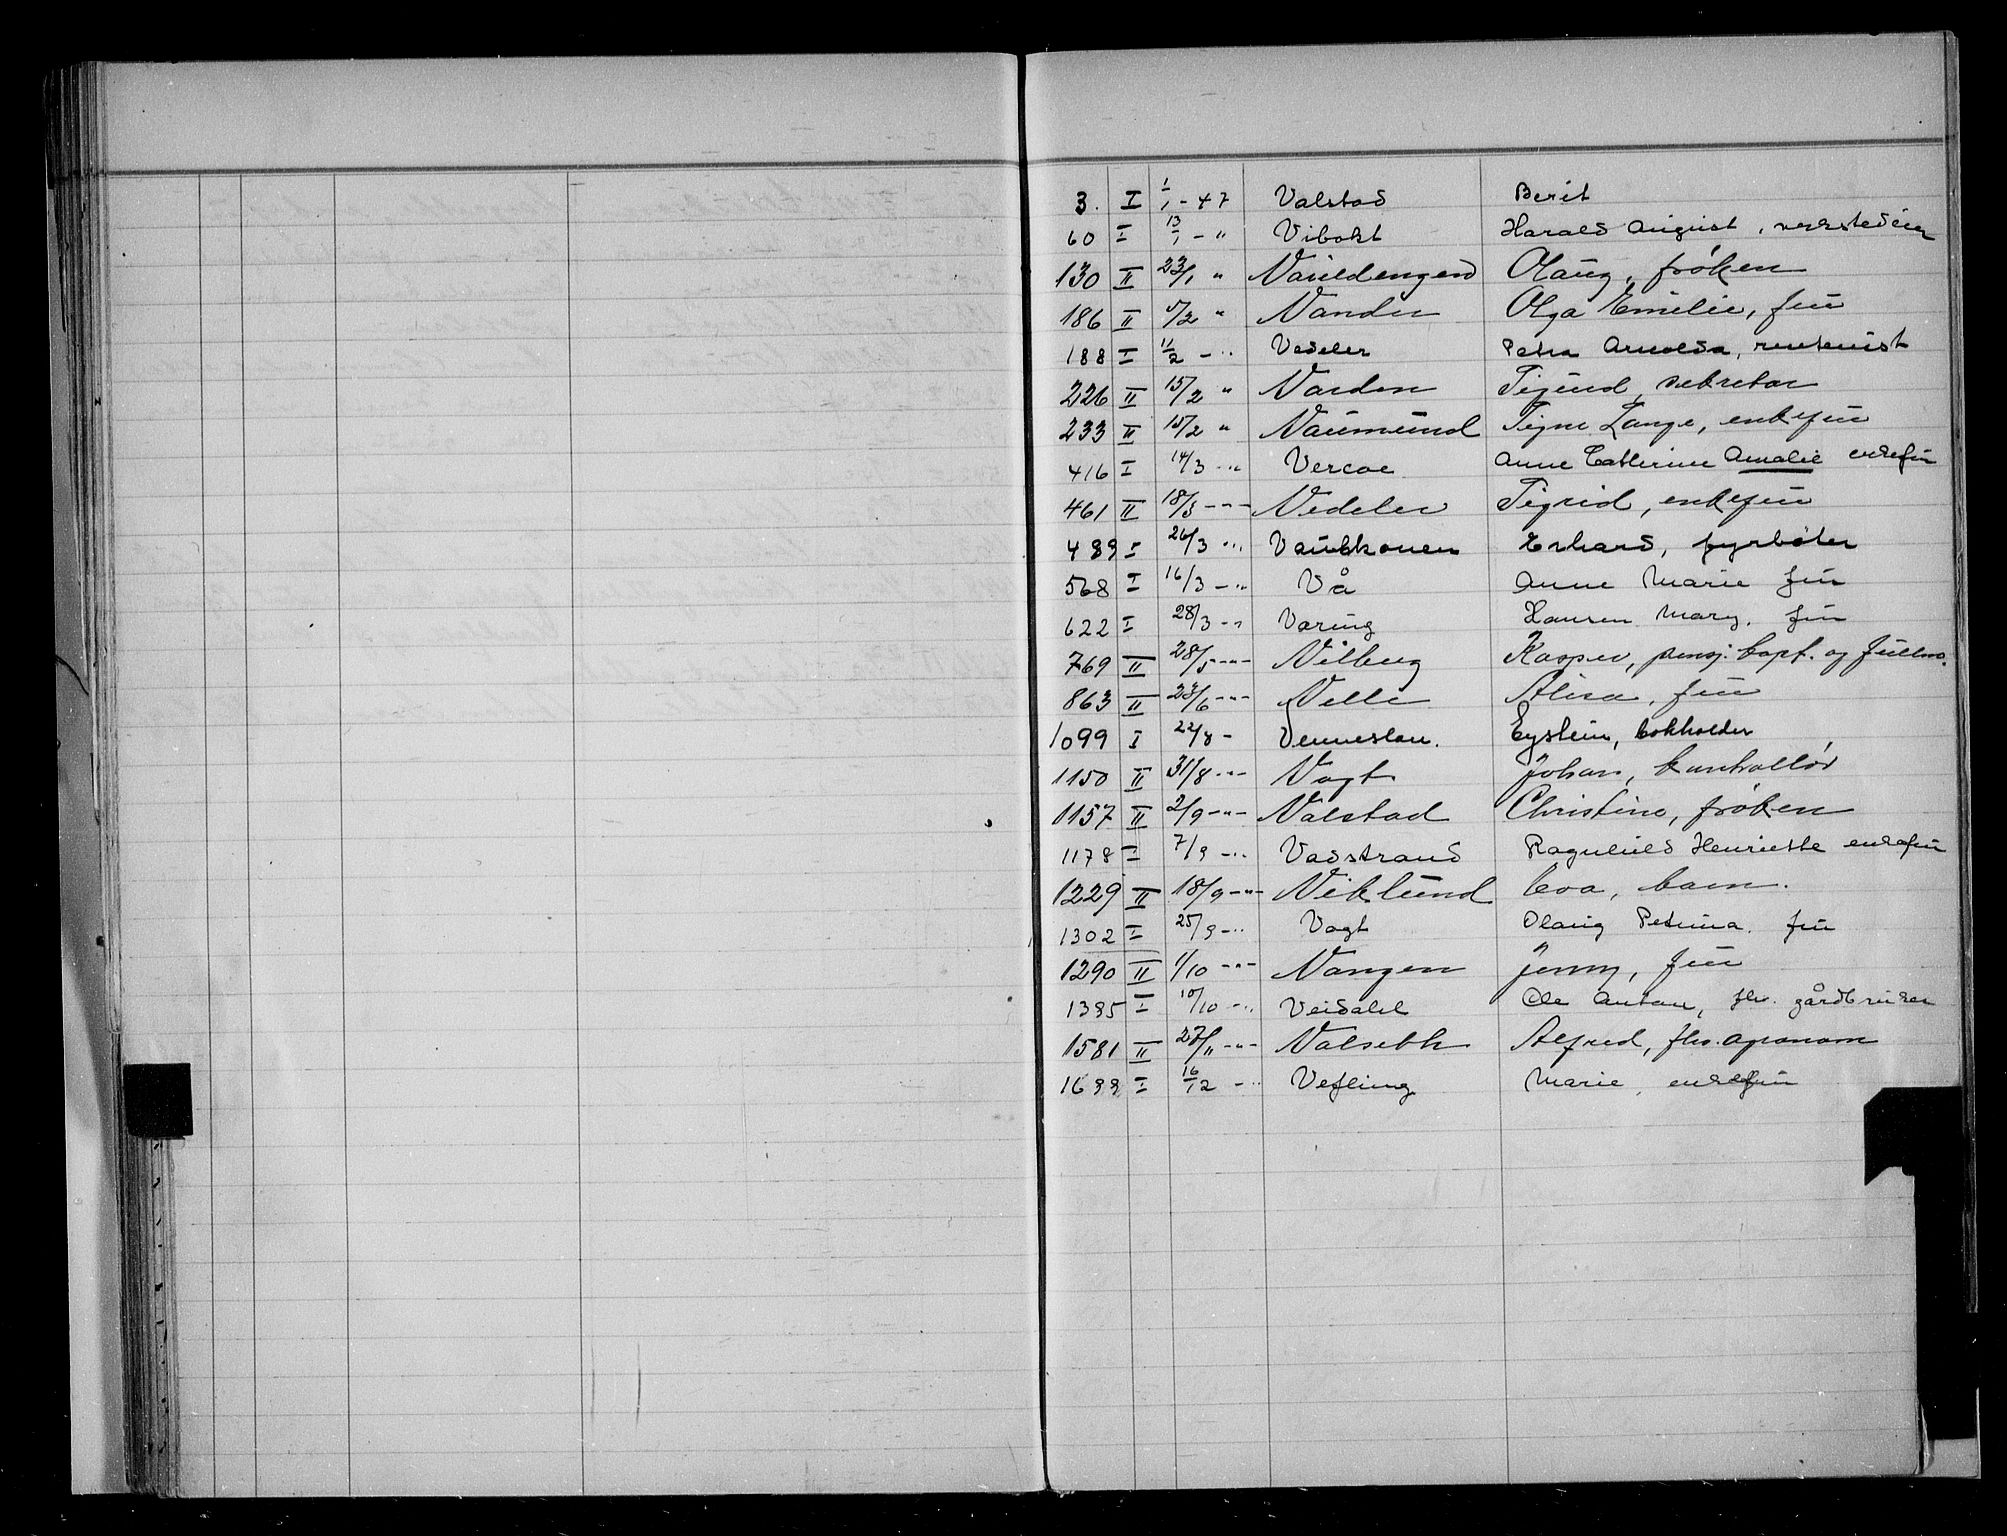 3. I 1/1 - 47 Valstad Berit
60 I 13/1 - " Vibokt Harald August, verkstedeier
130 II 23/1 " Vauldengen Olaug, frøken
186 II 5/2 " Vander Olga Emilie, fru
188 I 11/2 - " Vedeler Petra Arnolda, rentenist
226 II 15/2 " Varden Sigurd, sekretær
233 II 15/2 " Vaumund Signe Lange, enkefru
416 I 14/3 - " Vercoe Anne Catherine Amalie enkefru
461 II 18/3 - " - Vedeler Sigrid, enkefru
489 I 26/3 - " Vaukkonen Erhard, fyrbøter
568 I 16/3 - " Vå Anne Marie fru
622 I 28/3 - " Varing Hansen Mary, fru
769 II 28/5 - " - Vilberg Kasper, pensj. kapt. og fullm.
863 II 23/6 - " - Velle Alisa, fru
1099 I 22/8 - Venneslan. Eystein, bokholder
1150 II 31/8 - " - Vogt Johan, kontrollør
1157 II 2/9 - " - Valstad Christine, frøken
1178 I 7/9 - " Vadstrand Ragnhild Henriette enkefru
1229 II 18/9 - " - Viklund Eva, barn.
1302 I 25/9 - " Vogt Olaug Petrina. fru
1290 II 1/10 - " - Vangen Jenny, fru
1385 I 10/10 - " Veidahl Ole Anton, fhv. gårdbruker
1581 II 27/11 - " - Valseth Alfred, fhv. agronom
1688 I 16/12 - " Vefling Marie, enkefru